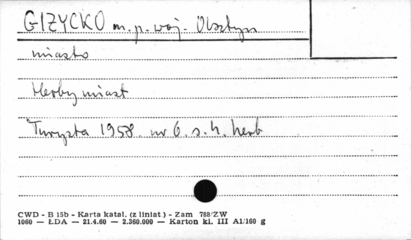 GIŻYCKO m. p. woj. Olsztyn
miasto
Herby miast
Turysta 1958. nr 6. s. h. herb
CWD - B 15b - Karta katal. (z liniat) - Zam 788/ZW
1060 — ŁDA — 21.4.60 — 2.360.000 — Karton kl. III A1/160 g